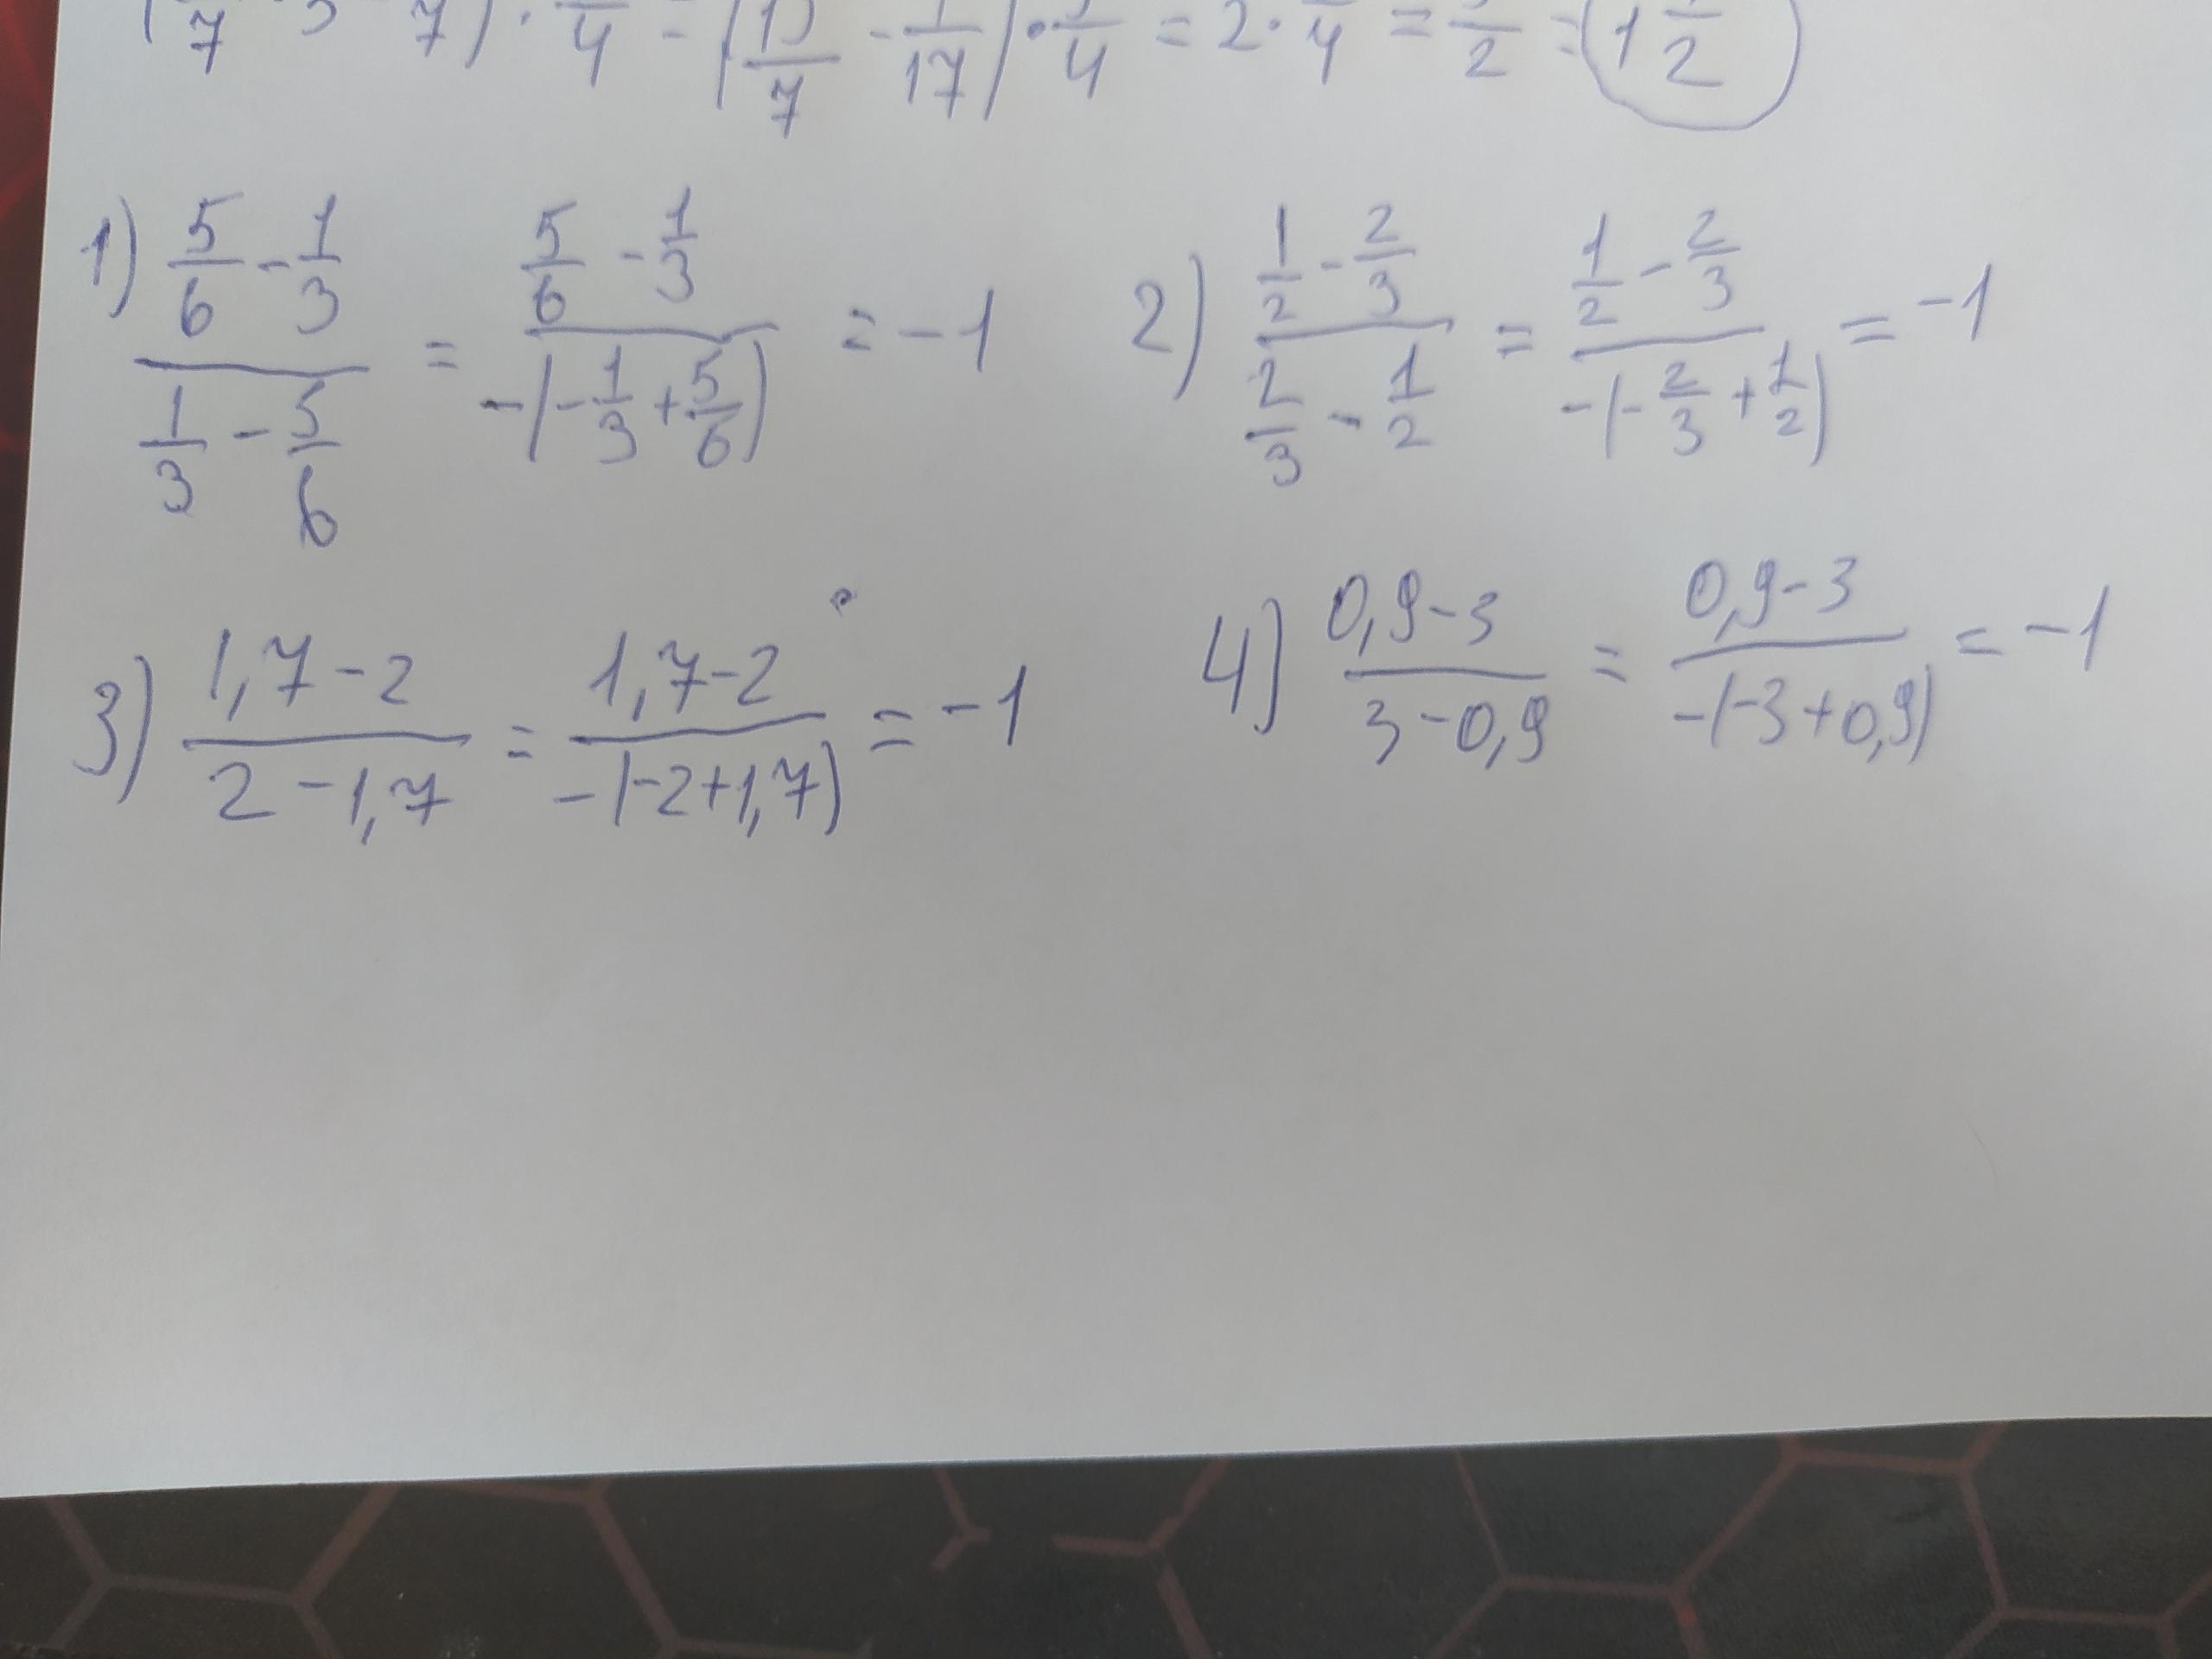 1) (5/6 - 1/3)/(1/3 - 5/6) = (5/6 - 1/3)/(-(-1/3 + 5/6)) = -1
2) (1/2 - 2/3)/(2/3 - 1/2) = (1/2 - 2/3)/(-(-2/3 + 1/2)) = -1
3) (1,7 - 2)/(2 - 1,7) = (1,7 - 2)/(-(-2 + 1,7)) = -1
4) (0,9 - 3)/(3 - 0,9) = (0,9 - 3)/(-(-3 + 0,9)) = -1